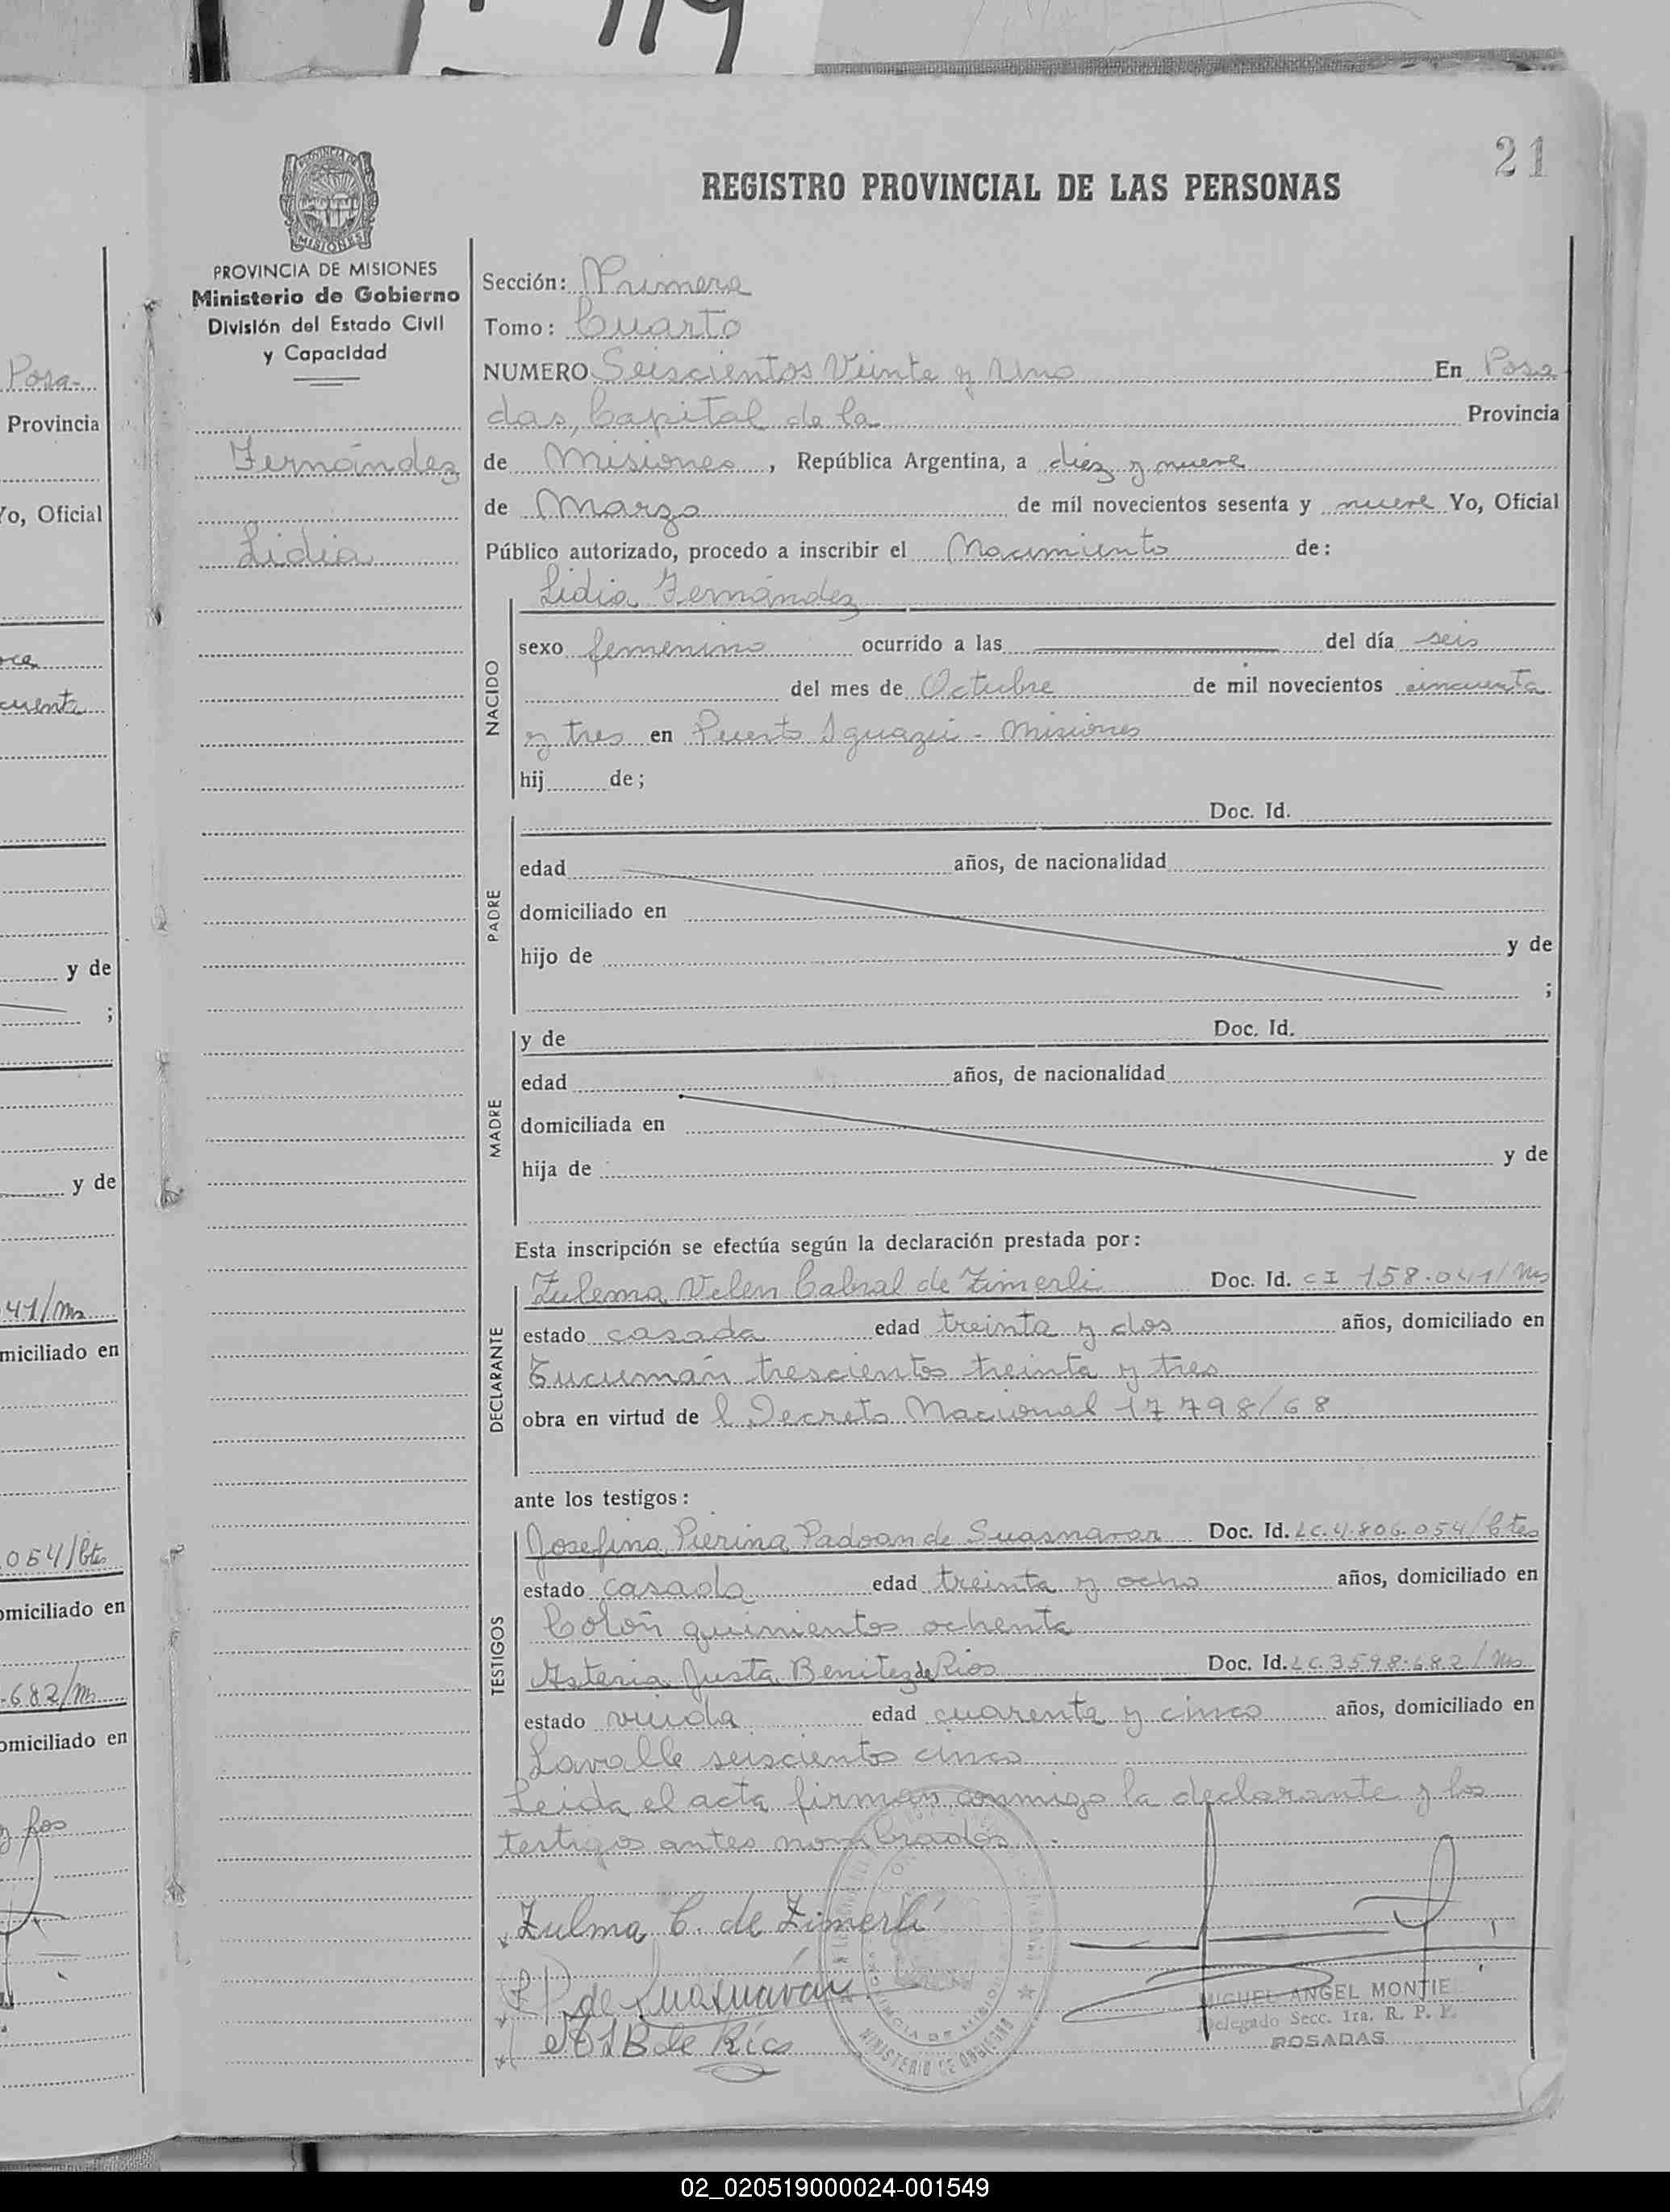 119
21
REGISTRO PROVINCIAL DE LAS PERSONAS
PROVINCIA DE
MISIONES
PROVINCIA DE MISIONES
Ministerio de Gobierno
División del Estado Civil
y Capacidad
Fernández
Lidia
Sección: Primera
Tomo: Cuarto
NUMERO Seiscientos Veinte y Uno En Posa
das, Capital de la Provincia
de Misiones, República Argentina, a diez y nueve
de Marzo de mil novecientos sesenta y nueve Yo, Oficial
Público autorizado, procedo a inscribir el Nacimiento de:
Lidia Fernández
NACIDO
sexo femenino ocurrido a las del día seis
del mes de Octubre de mil novecientos cincuenta
y tres en Puerto Iguazú - Misiones
hij de;
PADRE
Doc. Id.
edad años, de nacionalidad
domiciliado en
hijo de y de
;
MADRE
y de Doc. Id.
edad años, de nacionalidad
domiciliada en
hija de y de
Esta inscripción se efectúa según la declaración prestada por:
DECLARANTE
Zulema Velen Cabral de Zimerli Doc. Id. CI 158.041/Ms
estado casada edad treinta y dos años, domiciliado en
Tucumán trescientos treinta y tres
obra en virtud de l Decreto Nacional 17798/68
ante los testigos:
TESTIGOS
Josefina Pierina Padoan de Suasnavar Doc. Id. LC.4.806.054/Ctes
estado casada edad treinta y ocho años, domiciliado en
Colón quinientos ochenta
Asteria Justa Benitez de Rios Doc. Id. LC 3598.682/Ms
estado viuda edad cuarenta y cinco años, domiciliado en
Lavalle seiscientos cinco
Leida el acta firman conmigo la declarante y los
testigos antes nombrados.
Zulma C. de Zimerli
J P. de Suasnávar
B de Ríos
MINISTERIO DE GOBIERNO
PROVINCIA DE MISIONES
MIGUEL ANGEL MONTIE
Delegado Secc. 1ra. R. P. P.
POSADAS
Posa-
Provincia
Yo, Oficial
y de
;
y de
41/Ms
miciliado en
054/Ctes
omiciliado en
.682/Ms
omiciliado en
y los
02_020519000024-001549